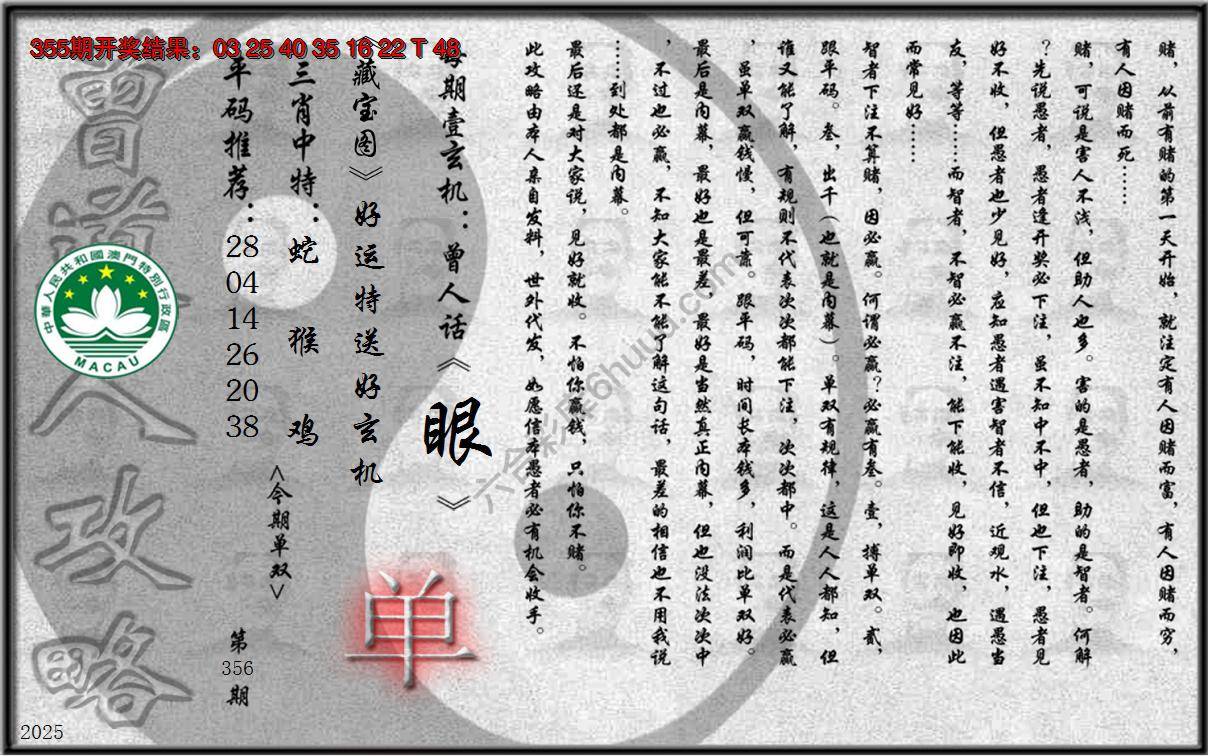 355期开奖结果：03 25 40 35 16 22 T 48
赌，从前有赌的第一天开始，就注定有人因赌而富，有人因赌而穷，
有人因赌而死……
赌，可说是害人不浅，但助人也多。害的是愚者，助的是智者。何解
？先说愚者，愚者逢开奖必下注，虽不知中不中，但也下注，愚者见
好不收，但愚者也少见好，应知愚者遇害智者不信，近观水，遇愚当
友，等等……而智者，不智必赢不注，能下能收，见好即收，也因此
而常见好……
智者下注不算赌，因必赢。何谓必赢？必赢有叁。壹，搏单双。贰，
跟平码。叁，出千（也就是内幕）。单双有规律，这是人人都知，但
谁又能了解，有规则不代表次次都能下注，次次都中。而是代表必赢
，虽单双赢钱慢，但可靠。跟平码，时间长本钱多，利润比单双好。
最后是内幕，最好也是最差，最好是当然真正内幕，但也没法次次中
，不过也必赢，不知大家能不能了解这句话，最差的相信也不用我说
……到处都是内幕。
最后还是对大家说，见好就收。不怕你赢钱，只怕你不赌。
此攻略由本人亲自发料，世外代发，如愿信本愚者必有机会收手。
每期壹玄机：曾人话《眼》
《藏宝图》好运特送好玄机
单
三肖中特：蛇 猴 鸡
<今期单双>
平码推荐：
28
04
14
26
20
38
第
356
期
曾道人攻略
中華人民共和國澳門特別行政區
MACAU
六合彩库6huuu.com
2025